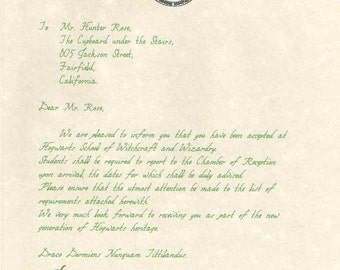 To Mr. Hunter Rose,
The Cupboard under the Stairs,
805 Jackson Street,
Fairfield,
California.
Dear Mr. Rose,
We are pleased to inform you that you have been accepted at
Hogwarts School of Witchcraft and Wizardry.
Students shall be required to report to the Chamber of Reception
upon arrival, the dates for which shall be duly advised.
Please ensure that the utmost attention be made to the list of
requirements attached herewith.
We very much look forward to receiving you as part of the new
generation of Hogwarts heritage.
Draco Dormiens Nunquam Tittilandus.